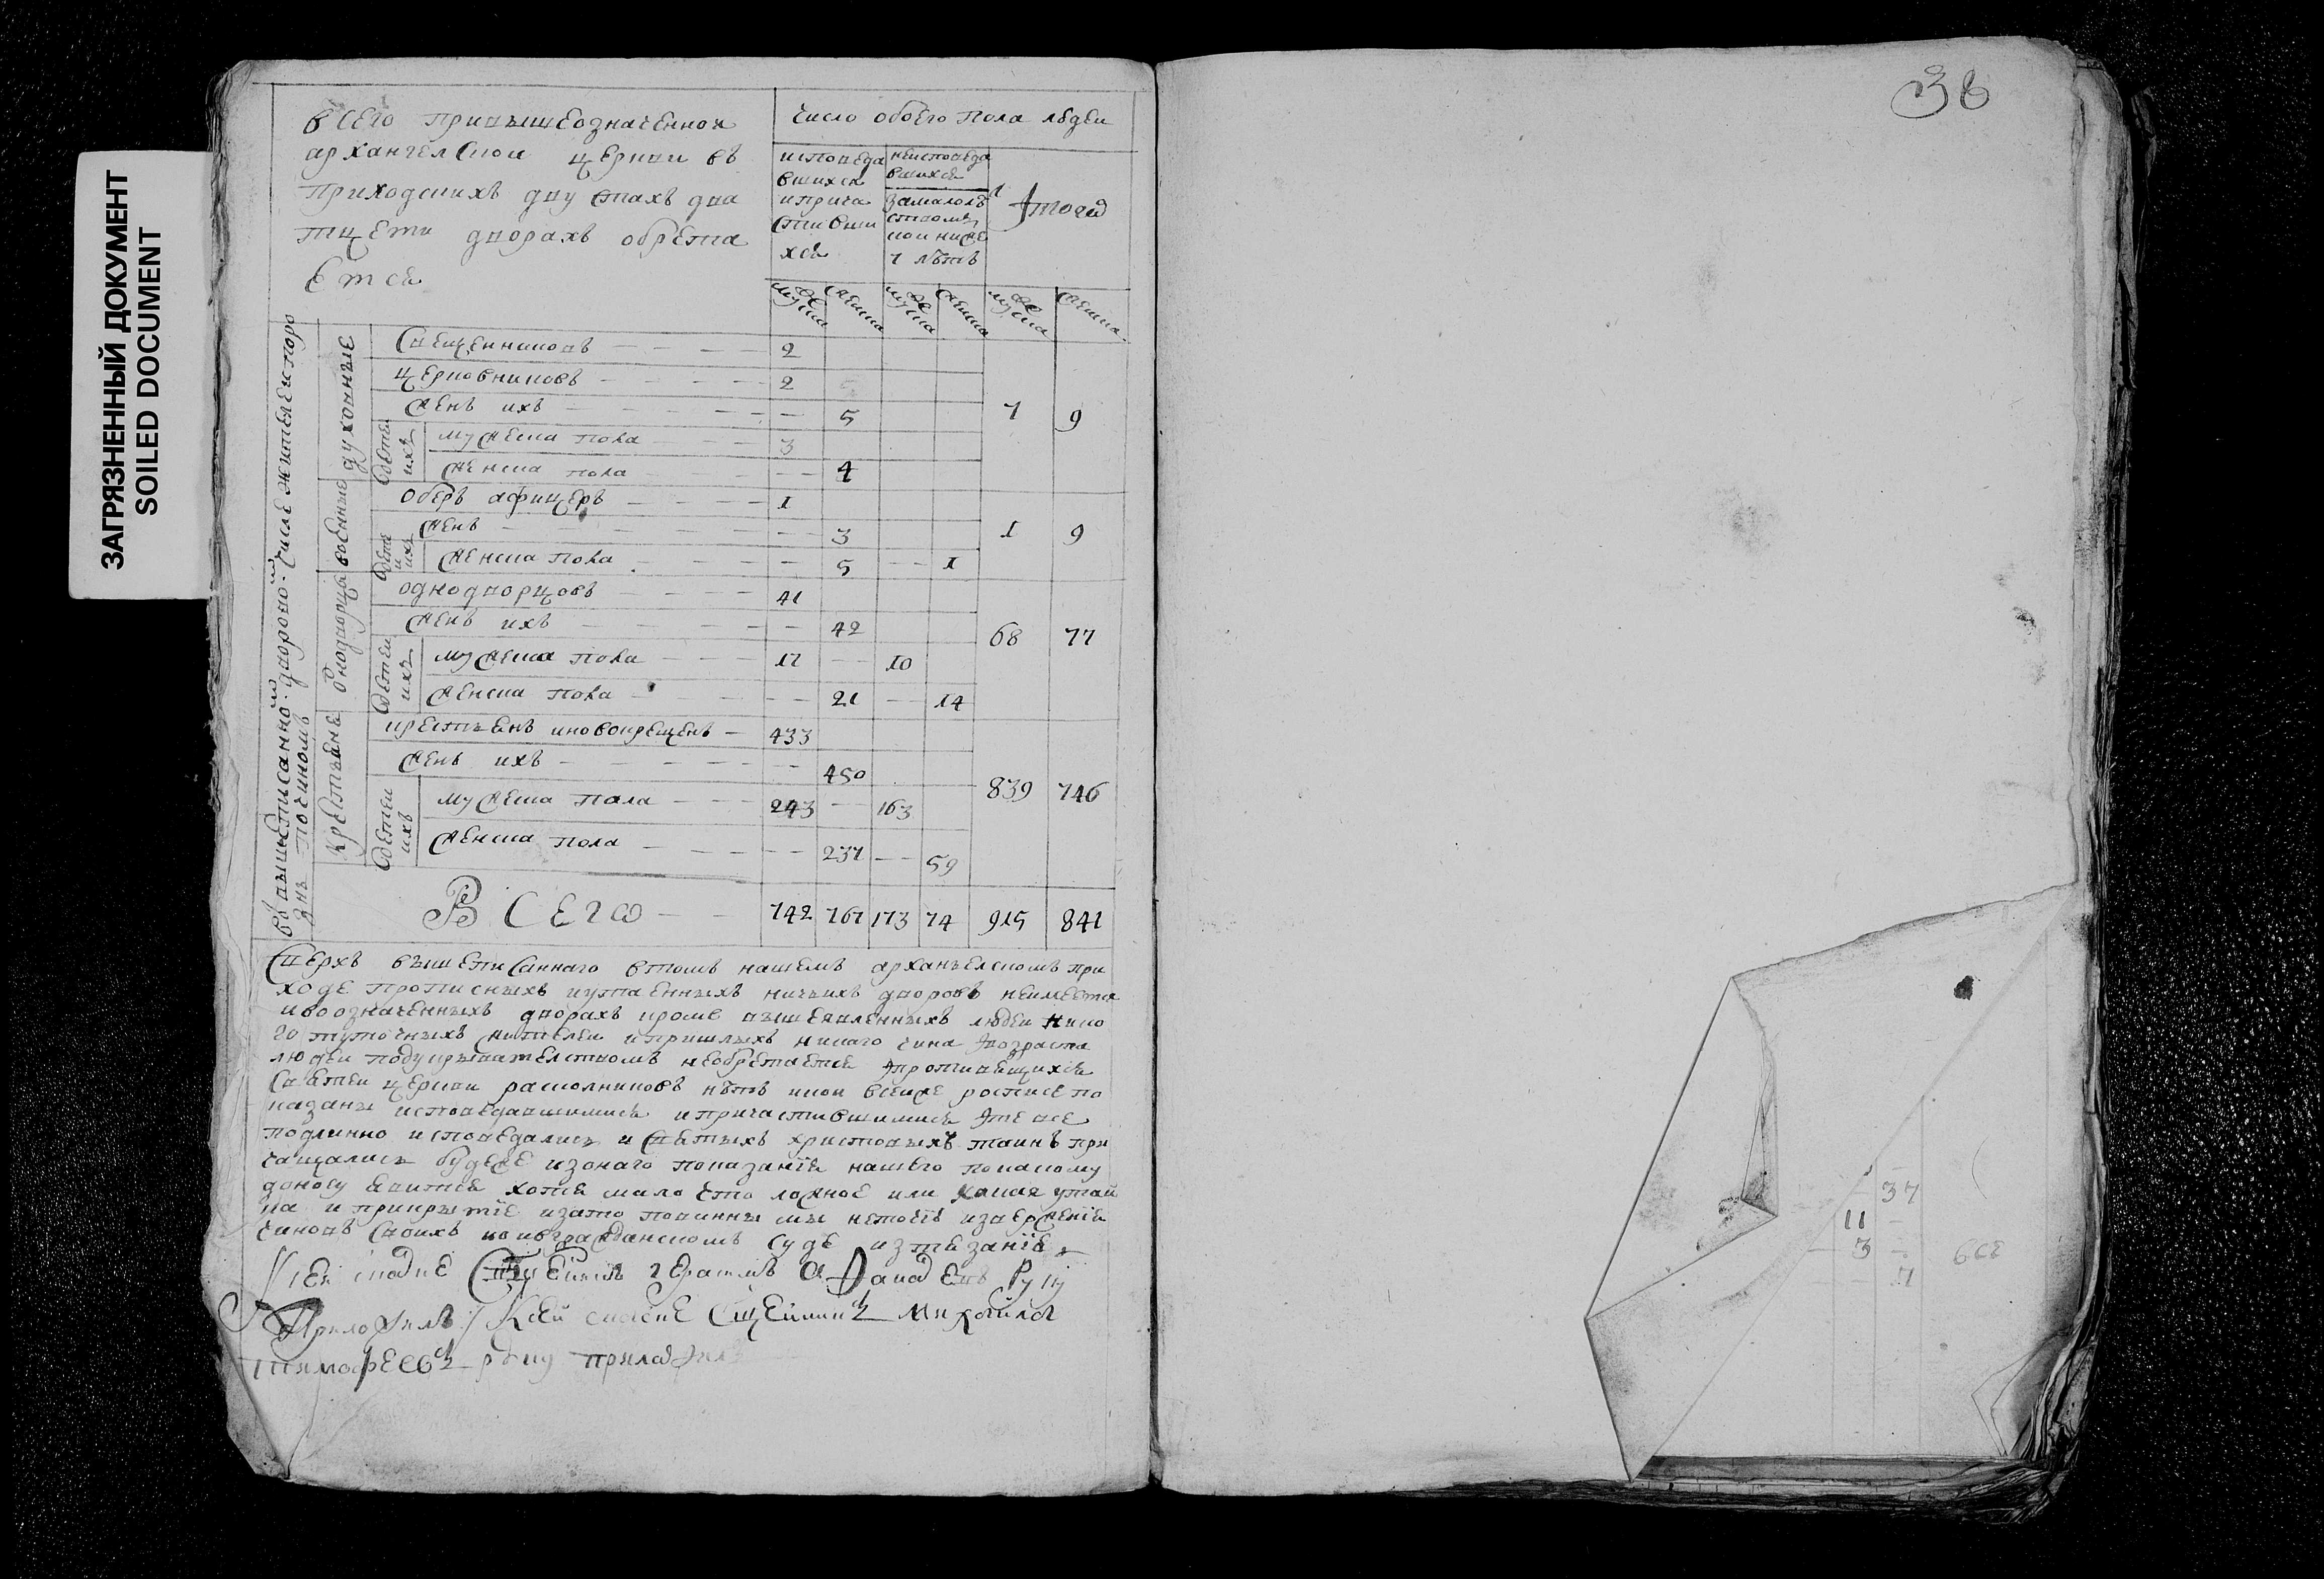 ЗАГРЯЗНЕННЫЙ ДОКУМЕНТ
SOILED DOCUMENT
38
всего привышеозначенной
архангелской церкви въ
приходскихъ двустахъ два
тцети дворахъ обрета
ется
число обоего пола людеи
исповеда
вшихся
и прича
стивши
хся
неисповеда
вшихся
замалолѣ
ством
кои ниже
7 лѣтъ
итого
мужеска
женска
мужеска
женска
мужеска
женска
духовные
Священниковъ 2
церковниковъ 2
женъ ихъ 5 7 9
детеи ихъ
мужеска пола 3
женска пола 4
военные
оберъ афицеръ 1
женъ 3 1 9
женска пола 5 1
однодворцы
однодворцовъ 41
женъ ихъ 42 68 77
детеи ихъ
мужеска пола 17 10
женска пола 21 14
крестьяне
крестьянъ иновокрещенъ 433
женъ ихъ 450 839 746
детеи ихъ
мужеска пола 243 163
женска пола 237 59
Всего 742 767 173 74 915 841
Сверхъ вышеписаннаго втомъ нашемъ архангелскомъ при
ходе прописныхъ иутаенныхъ ничьихъ дворовъ неимеетца
ивоозначенныхъ дворахъ кроме вышеявленныхъ людеи нико
го туточныхъ жителеи ипришлыхъ никаго чина ивозраста
людеи подукрывателством необретается ипротивящихся
святеи церкви расколниковъ нѣтъ икои всеиже росписе по
казаны исповедавшимися ипричастившимися ите все
подлинно исповедались и святыхъ христовыхъ таинъ при
чащались будеже изонаго показания нашего покакому
доносу явится хотя мало что ложное или какая утаи
ка и прикрытие изато повинны мы неточию извержение
чиновъ своихъ ноивгражданскомъ суде изтязание
Ксеи скаске
руку
приложилъ Ксеи скаске Сщенникъ михаила
тимофеевъ руку приложилъ
37
11
3
7